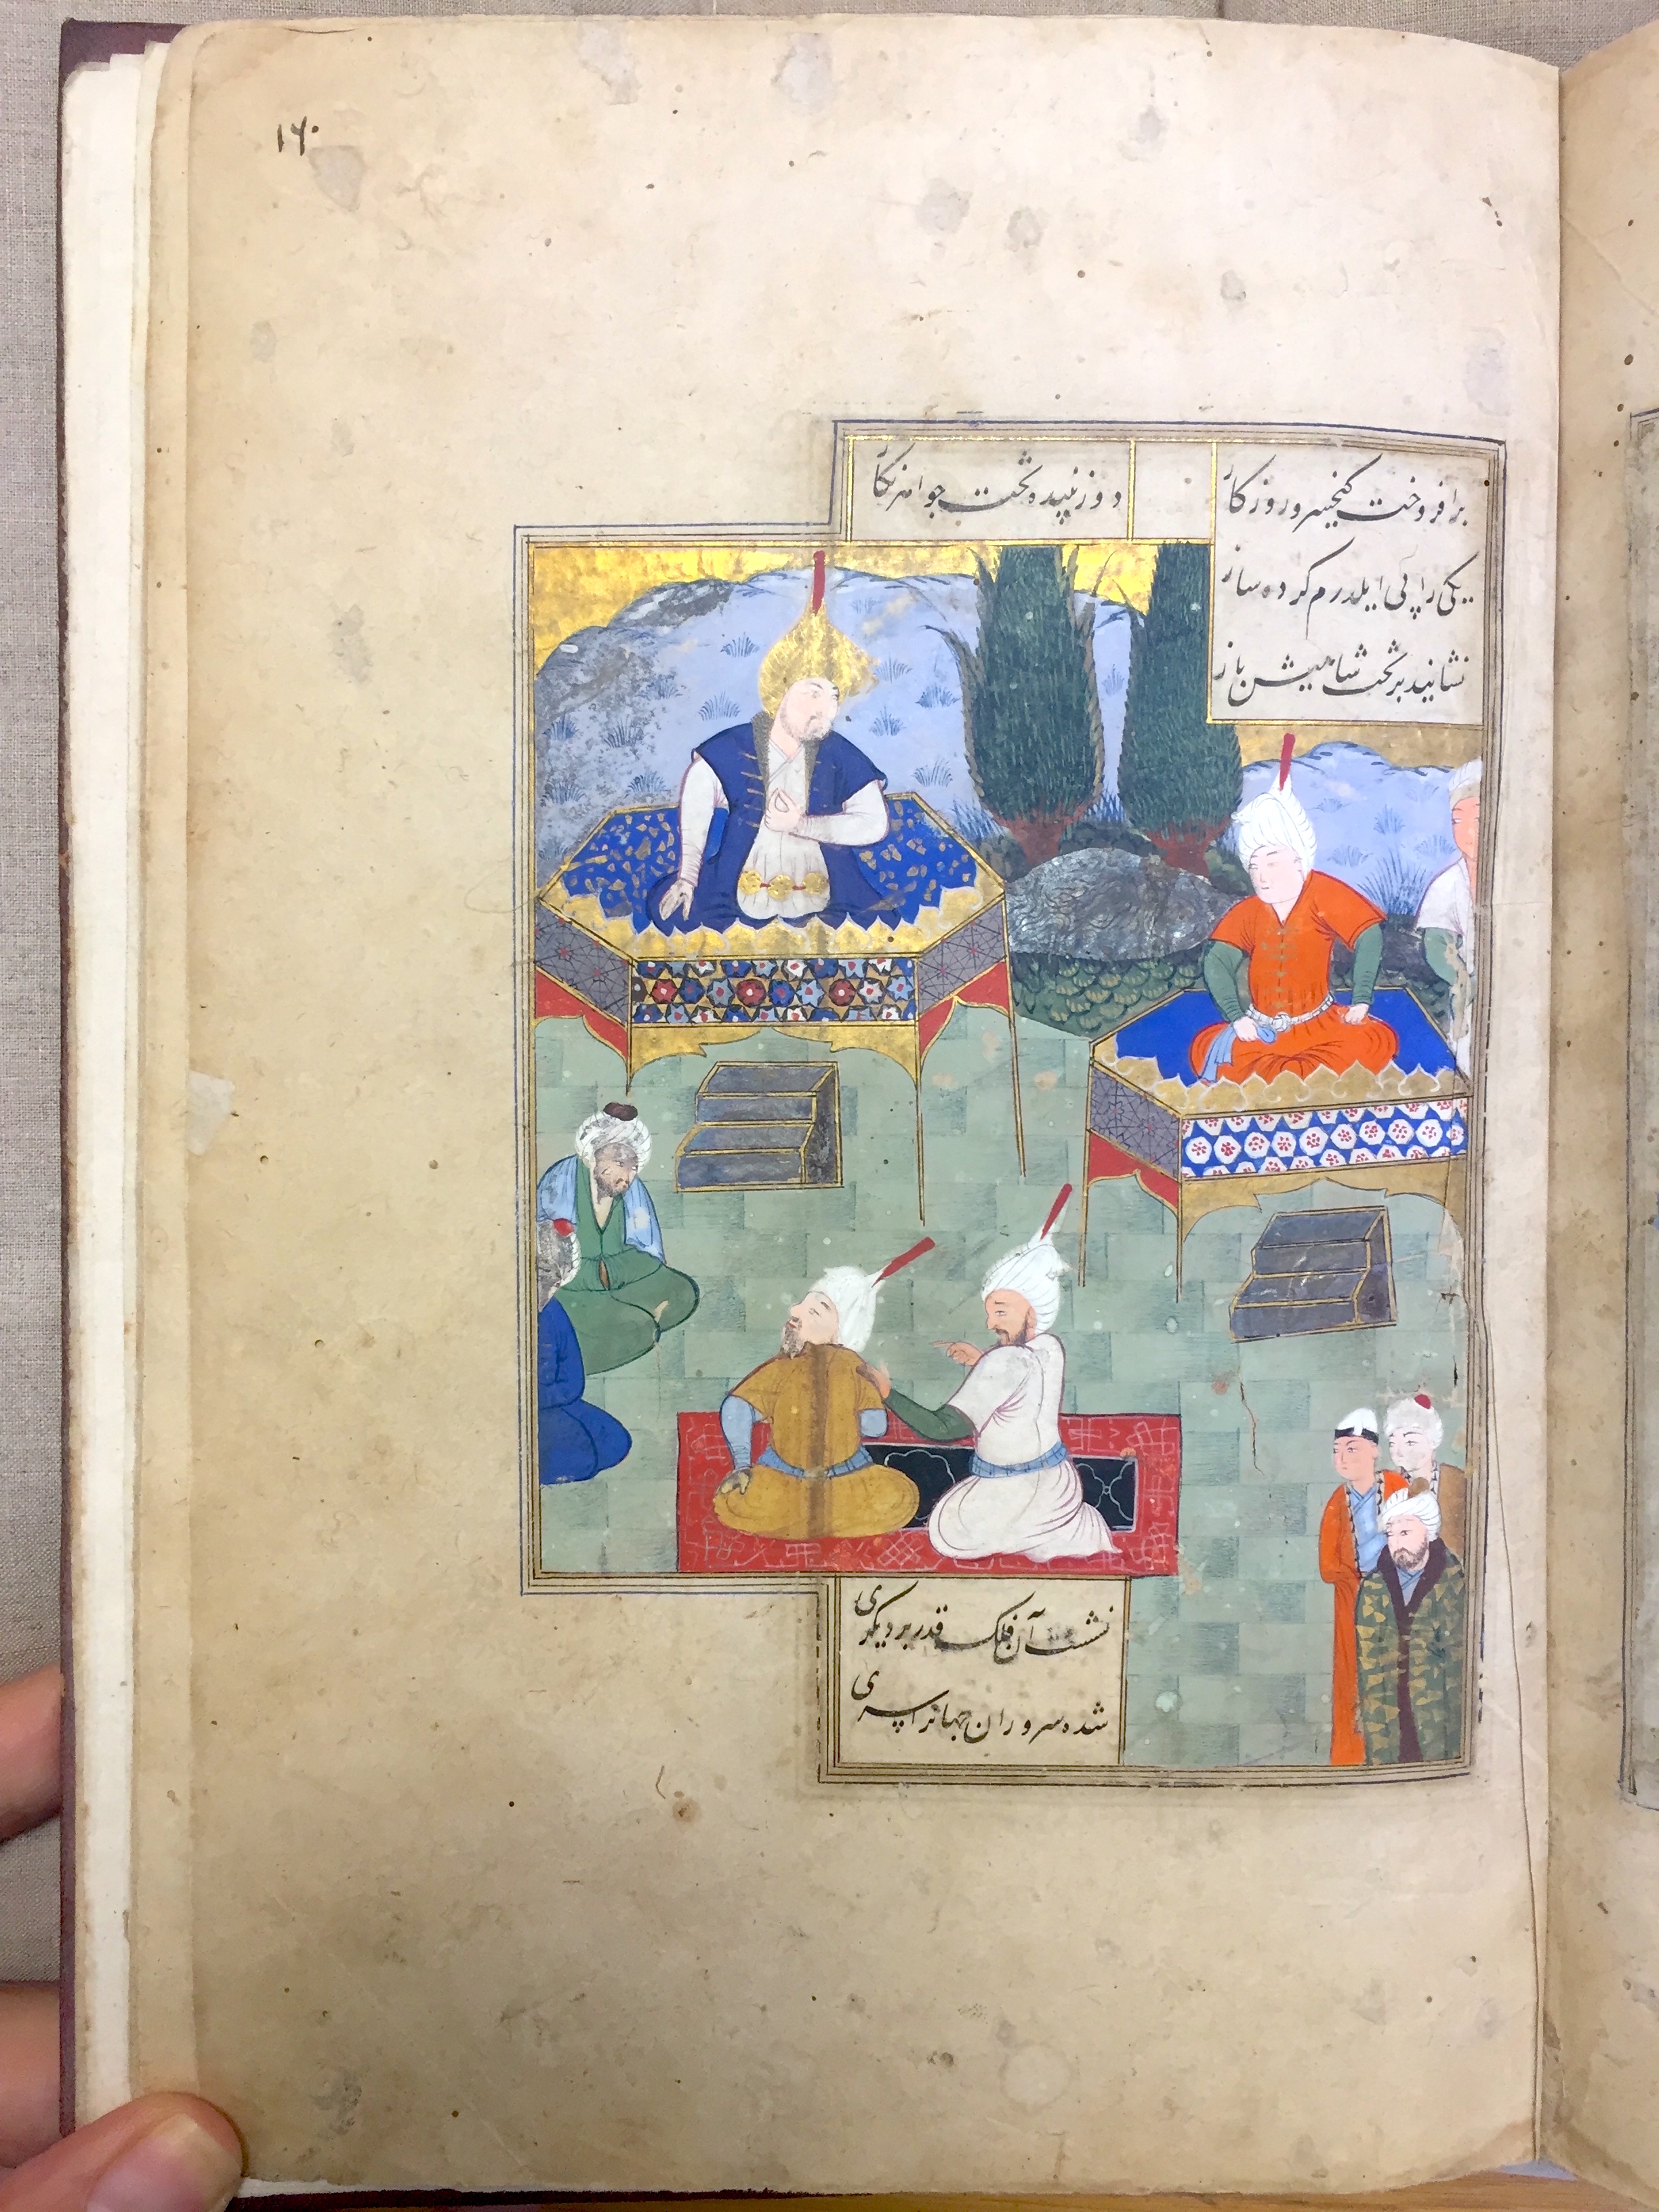 ۱۶۰
برافروخت کنجیسرو روزکار
دو زیبنده تخت جواهرنکار
یکی را پی ایلدرم کرده ساز
نشانید بر تخت شاهیش باز
نشست آن فلک قدر بر دیکری
شده سروران جهانرا سری